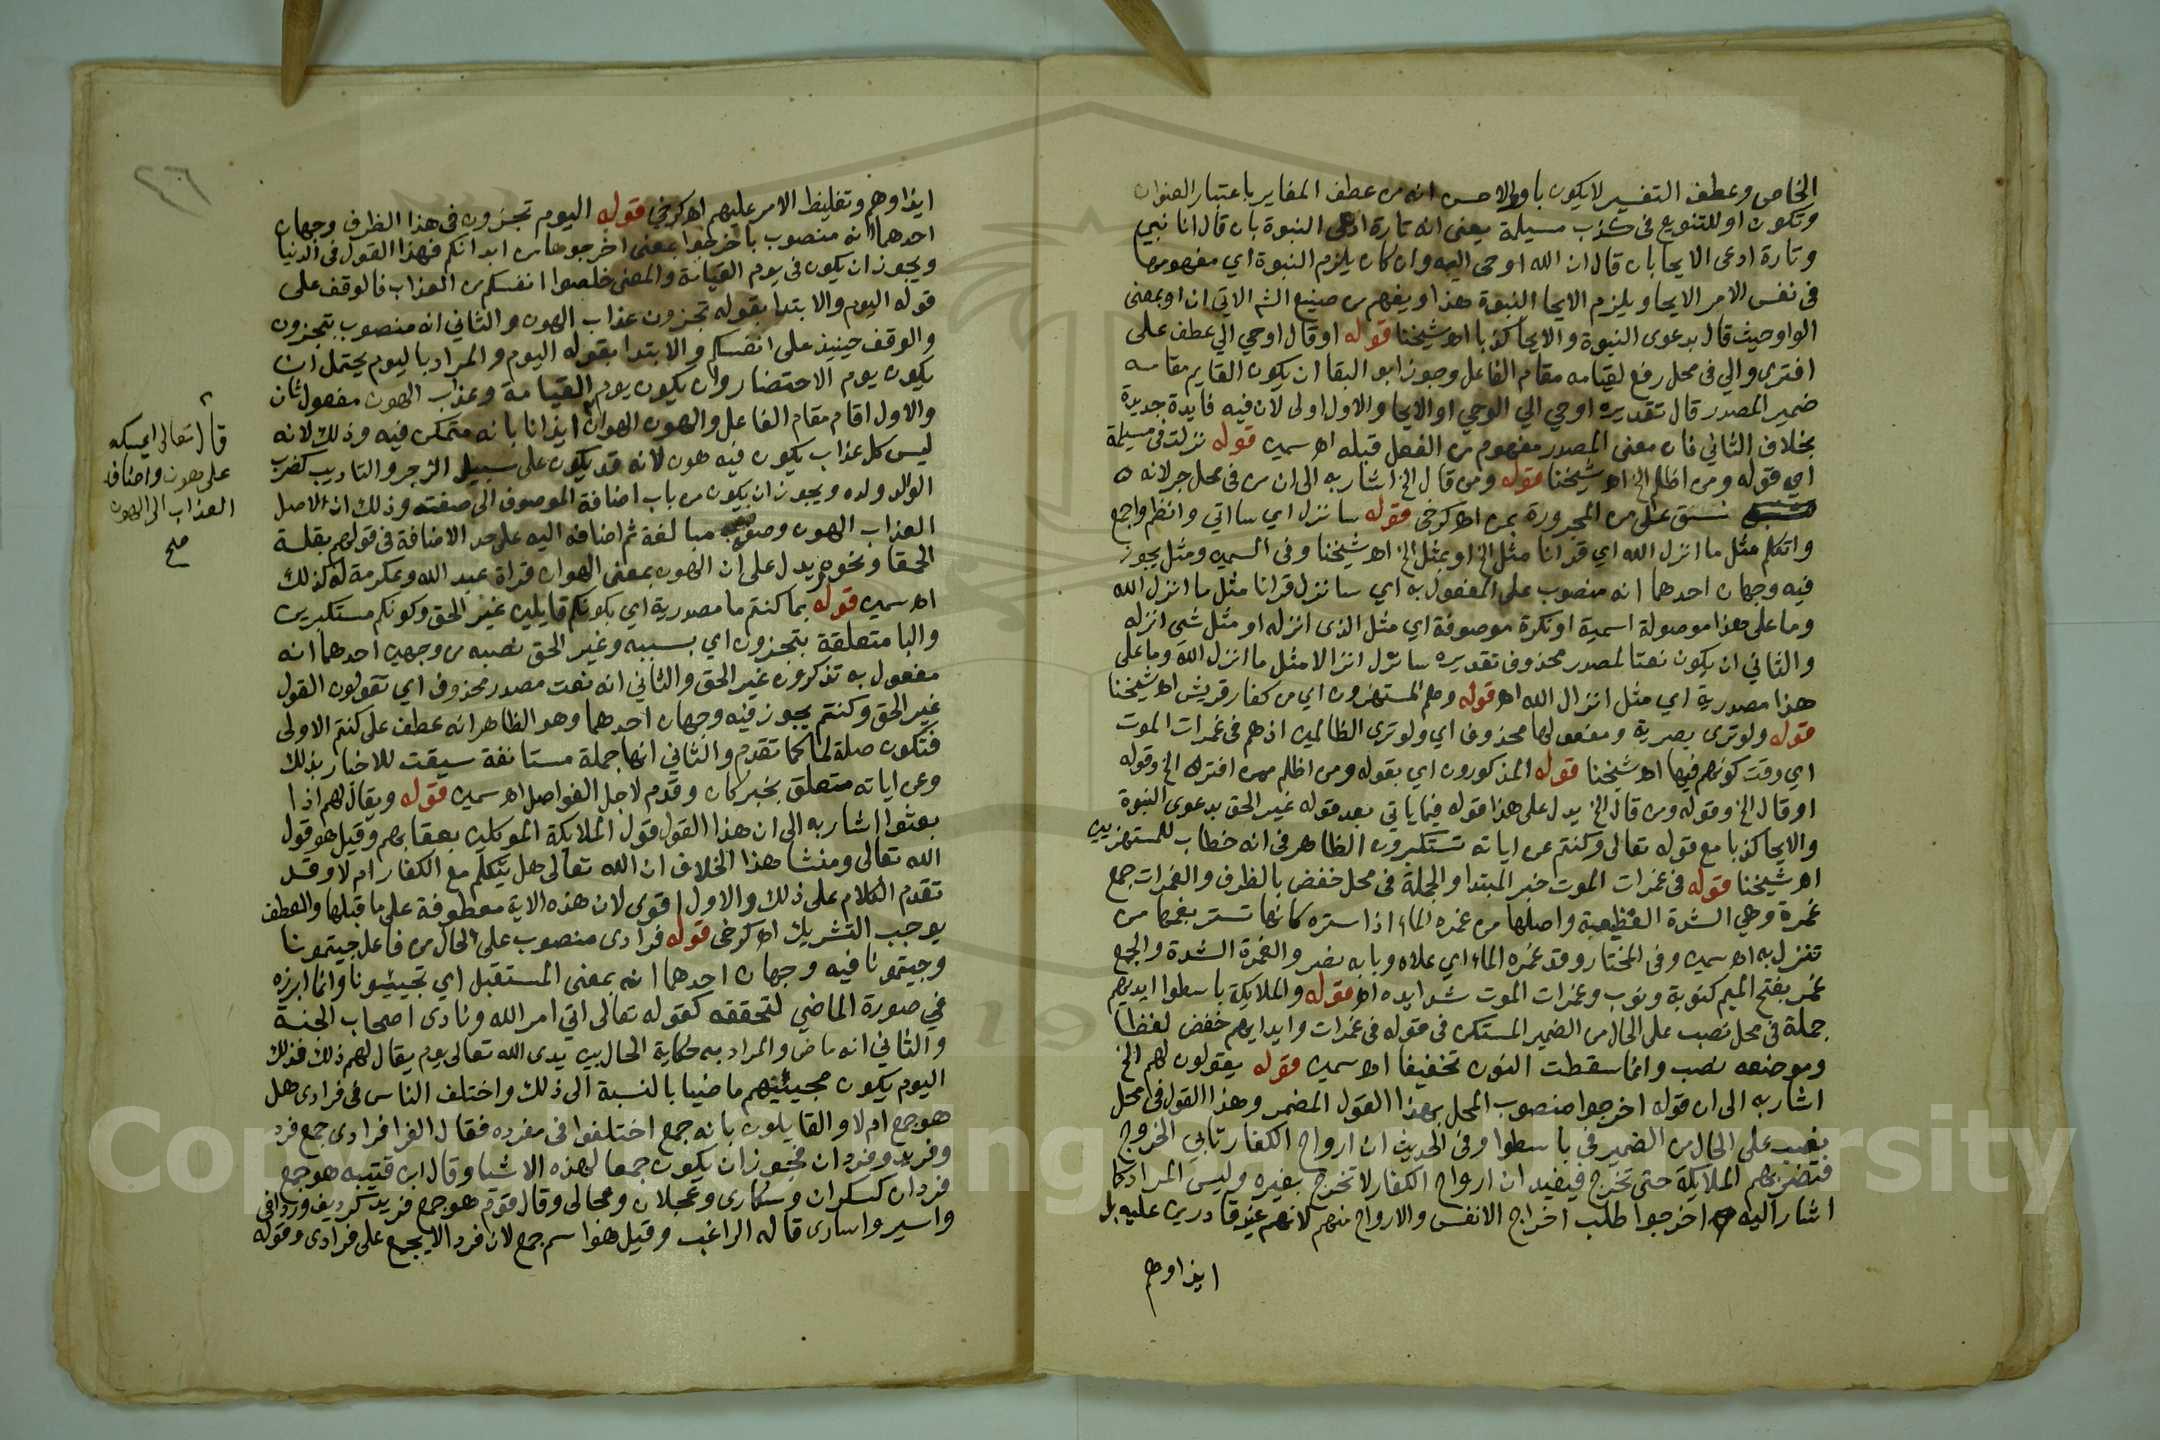 الخاص وعطف التفسير لا يكون باو والاحسن انه من عطف المغاير باعتبار العنوان
وتكون او للتنويع في كذب مسيلمة يعني انه تارة ادعى النبوة بان قال انا نبي
وتارة ادعى الايحا بان قال ان الله اوحى اليه وان كان يلزم النبوة اي مفهومها
في نفس الامر الايحا ويلزم الايحا النبوة هذا ويفهم من صنيع الش الاتي ان او بمعنى
الواو حيث قال بدعوى النبوة والايحا كذبا اه شيخنا قوله او قال اوحي الي عطف على
افترى والي في محل رفع لقيامه مقام الفاعل وجوز ابو البقا ان يكون القايم مقامه
ضمير المصدر قال تقديره اوحي الي الوحي او الايحا والاول اولى لان فيه فايدة جديدة
بخلاف الثاني فان معنى المصدر مفهوم من الفعل قبله اه سمين قوله نزلت في مسيلمة
اي قوله ومن اظلم الخ اه شيخنا قوله ومن قال الخ اشار به الى ان من في محل جر لانه
نسق على من المجرورة بمن اه كرخي قوله سانزل اي ساتي وانظم واجمع
واتكلم مثل ما انزل الله اي قرانا مثل الخ او بمثل الخ اه شيخنا وفي السمين ومثل يجوز
فيه وجهان احدهما انه منصوب على المفعول به اي سانزل قرانا مثل ما انزل الله
وما على هذا موصولة اسمية او نكرة موصوفة اي مثل الذي انزله او مثل شي انزله
والثاني ان يكون نعتا لمصدر محذوف تقديره سانزل انزالا مثل ما انزل الله وما على
هذا مصدرية اي مثل انزال الله اه قوله وهم المستهزون اي من كفار قريش اه شيخنا
قوله ولو ترى بصرية ومفعولها محذوف اي ولو ترى الظالمين اذ هم في غمرات الموت
اي وقت كونهم فيها اه شيخنا قوله المذكورون اي بقوله ومن اظلم ممن افترى الخ وقوله
او قال الخ وقوله ومن قال الخ يدل على هذا قوله فيما ياتي بعد قوله غير الحق بدعوى النبوة
والايحا كذبا مع قوله تعالى وكنتم عن اياته تستكبرون الظاهر في انه خطاب للمستهزيين
اه شيخنا قوله في غمرات الموت خبر المبتدا والجملة في محل خفض بالظرف والغمرات جمع
غمرة وهي الشدة الفظيعة واصلها من غمره الماء اذا ستره كانها تستر بغمها من
تنزل به اه سمين وفي المختار وقد غمره الماء اي علاه وبابه نصر والغمرة الشدة والجمع
غمر بفتح الميم كنوبة ونوب وغمرات الموت شدايده اه قوله والملايكة باسطوا ايديهم
جملة في محل نصب على الحال من الضمير المستكن في قوله في غمرات وايديهم خفض لفظا
وموضعه نصب وانما سقطت النون تخفيفا اه سمين قوله يقولون لهم الخ
اشار به الى ان قوله اخرجوا منصوب المحل بهذا القول المضمر وهذا القول في محل
نصب على الحال من الضمير في باسطوا وفي الحديث ان ارواح الكفار تابى الخروج
فتضربهم الملايكة حتى تخرج فيفيد ان ارواح الكفار لا تخرج بغيره وليس المراد كما
اشار اليه اخرجوا طلب اخراج الانفس والارواح منهم لانهم غير قادرين عليه بل
ايذاوهم
٤٦
ايذاوهم وتغليظ الامر عليهم اه كرخي قوله اليوم تجزون في هذا الظرف وجهان
احدهما انه منصوب باخرجوا بمعنى اخرجوها من ابدانكم فهذا القول في الدنيا
ويجوز ان يكون في يوم القيامة والمعنى خلصوا انفسكم من العذاب فالوقف على
قوله اليوم والابتدا بقوله تجزون عذاب الهون والثاني انه منصوب بتجزون
والوقف حينيذ على انفسكم والابتدا بقوله اليوم والمراد باليوم يحتمل ان
يكون يوم الاحتضار وان يكون يوم القيامة وعذاب الهون مفعول ثان
والاول اقام مقام الفاعل والهون الهوان ايذانا بانه متمكن فيه وذلك لانه
ليس كل عذاب يكون فيه هون لانه قد يكون على سبيل الزجر والتاديب كضرب
الوالد ولده ويجوز ان يكون من باب اضافة الموصوف الى صفته وذلك ان الاصل
العذاب الهون وصف به مبالغة ثم اضافه اليه على حد الاضافة في قولهم بقلة
الحمقا ونحوه ويدل على ان الهون بمعنى الهوان قراة عبد الله وعكرمة له كذلك
اه سمين قوله بما كنتم ما مصدرية اي بكونكم قايلين غير الحق وكونكم مستكبرين
والبا متعلقة بتجزون اي بسببه وغير الحق نصبه من وجهين احدهما انه
مفعول به تذكرون غير الحق والثاني انه نعت مصدر محذوف اي تقولون القول
غير الحق وكنتم يجوز فيه وجهان احدهما وهو الظاهر انه عطف على كنتم الاولى
فتكون صلة لما كما تقدم والثاني انها جملة مستانفة سيقت للاخبار بذلك
وعن اياته متعلق بخبر كان وقدم لاجل الفواصل اه سمين قوله ويقال لهم اذا
بعثوا اشار به الى ان هذا القول قول الملايكة الموكلين بعقابهم وقيل هو قول
الله تعالى ومنشا هذا الخلاف ان الله تعالى هل يتكلم مع الكفار ام لا وقد
تقدم الكلام على ذلك والاول اقوى لان هذه الاية معطوفة على ما قبلها والعطف
يوجب التشريك اه كرخي قوله فرادى منصوب على الحال من فاعل جيتمونا
وجيتمونا فيه وجهان احدهما انه بمعنى المستقبل اي تجيئوننا وانما ابرزه
في صورة الماضي لتحققه كقوله تعالى اتى امر الله ونادى اصحاب الجنة
والثاني انه ماض والمراد به حكاية الحال بين يدي الله تعالى يوم يقال لهم ذلك فذلك
اليوم يكون مجيئهم ماضيا بالنسبة الى ذلك واختلف الناس في فرادى هل
هو جمع ام لا والقايلون بانه جمع اختلفوا في مفرده فقال الفرا فرادى جمع فرد
وفريد وفردان فجوز ان يكون جمعا لهذه الاشيا وقال ابن قتيبه هو جمع
فردان كسكران وسكارى وعجلان وعجالى وقال قوم هو جمع فريد كرديف وردافى
واسير واسارى قاله الراغب وقيل هو اسم جمع لان فرد الا يجمع على فرادى وقوله
قال تعالى ايمسكه
على هون واضاف
العذاب الى الهون
صح